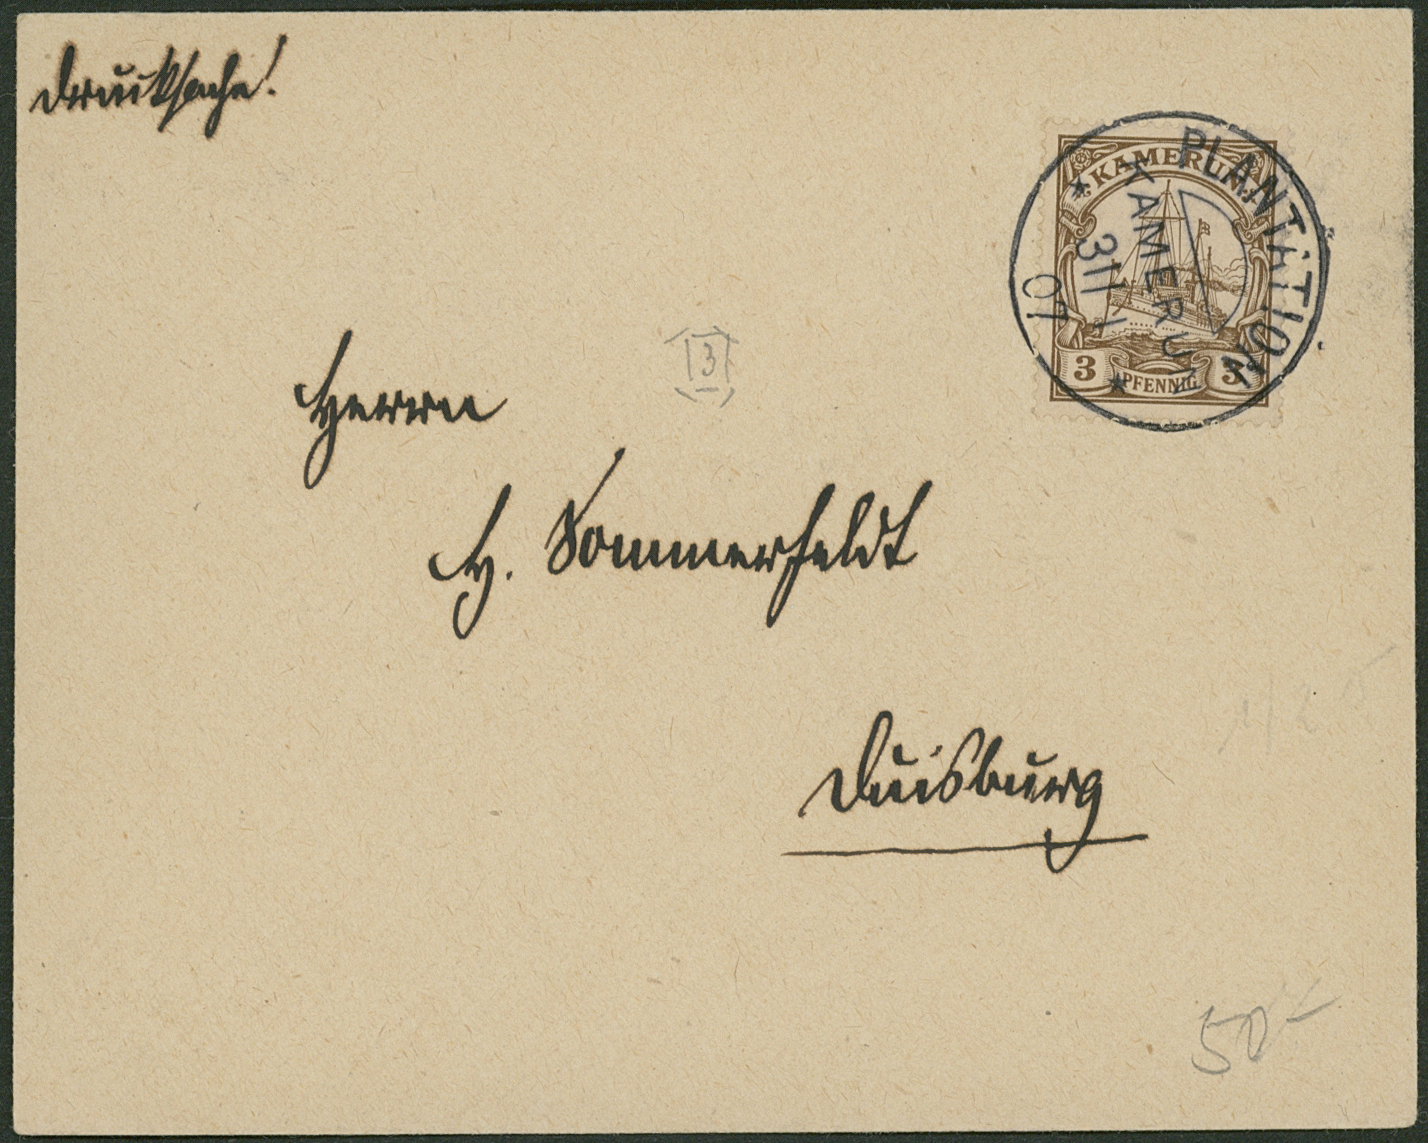 Drucksache!
KAMERUN
3 PFENNIG 3
PLANTATION
KAMERUN
31/1
07
[3]
Herrn
H. Sommerfeldt
Duisburg
50.-